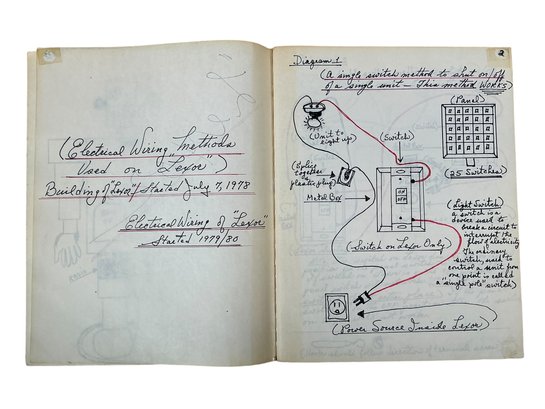 (Electrical Wiring Methods
Used on "Lexor")
Building of "Lexor" Started July 7, 1978
Electrical Wiring of "Lexor"
Started 1979/80
2
Diagram 1
(A single switch method to shut on/off
of a single unit - This method WORKS
(Panel)
(25 Switches)
(Unit to
light up)
(Switch)
(Splice
together
plastic plug)
Metal Box
ON
OFF
(Switch on Lexor Only)
(Light Switch)
a switch is a
device used to
break a circuit to
interrupt the
flow of electricity
The ordinary
switch, used to
control a unit from
one point is called
a "single pole" switch)
(Power Source Inside Lexor)